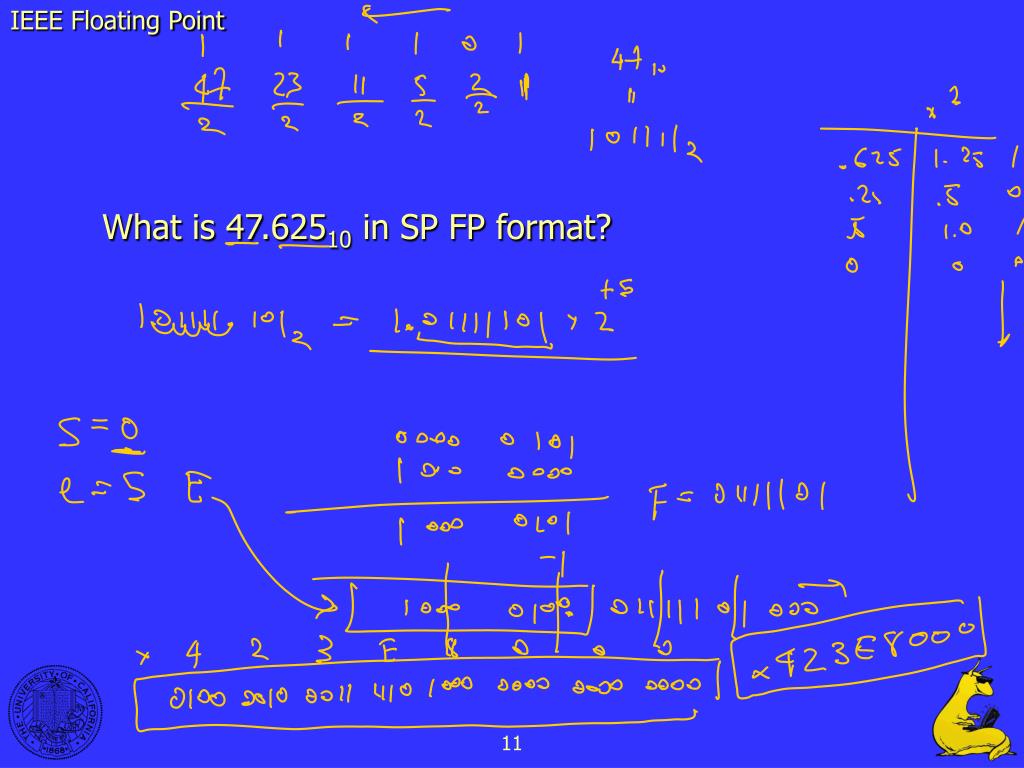 IEEE Floating Point
1 1 1 1 0 1
47 23 11 5 2 1
2 2 2 2 2
47₁₀
"
101111₂
x 2
.625 1.25 1
.25 .5 0
.5 1.0 1
0 0 0
What is 47.625₁₀ in SP FP format?
101111.101₂ = 1.01111101 x 2⁺⁵
S = 0
e = 5 E
0000 0101
1000 0000
1000 0101
-1
F = 01111101
1000 0100 01111101 000
x 4 2 3 E 8 0 0 0
0100 0010 0011 1110 1000 0000 0000 0000
x423E8000
THE UNIVERSITY OF CALIFORNIA
1868
11